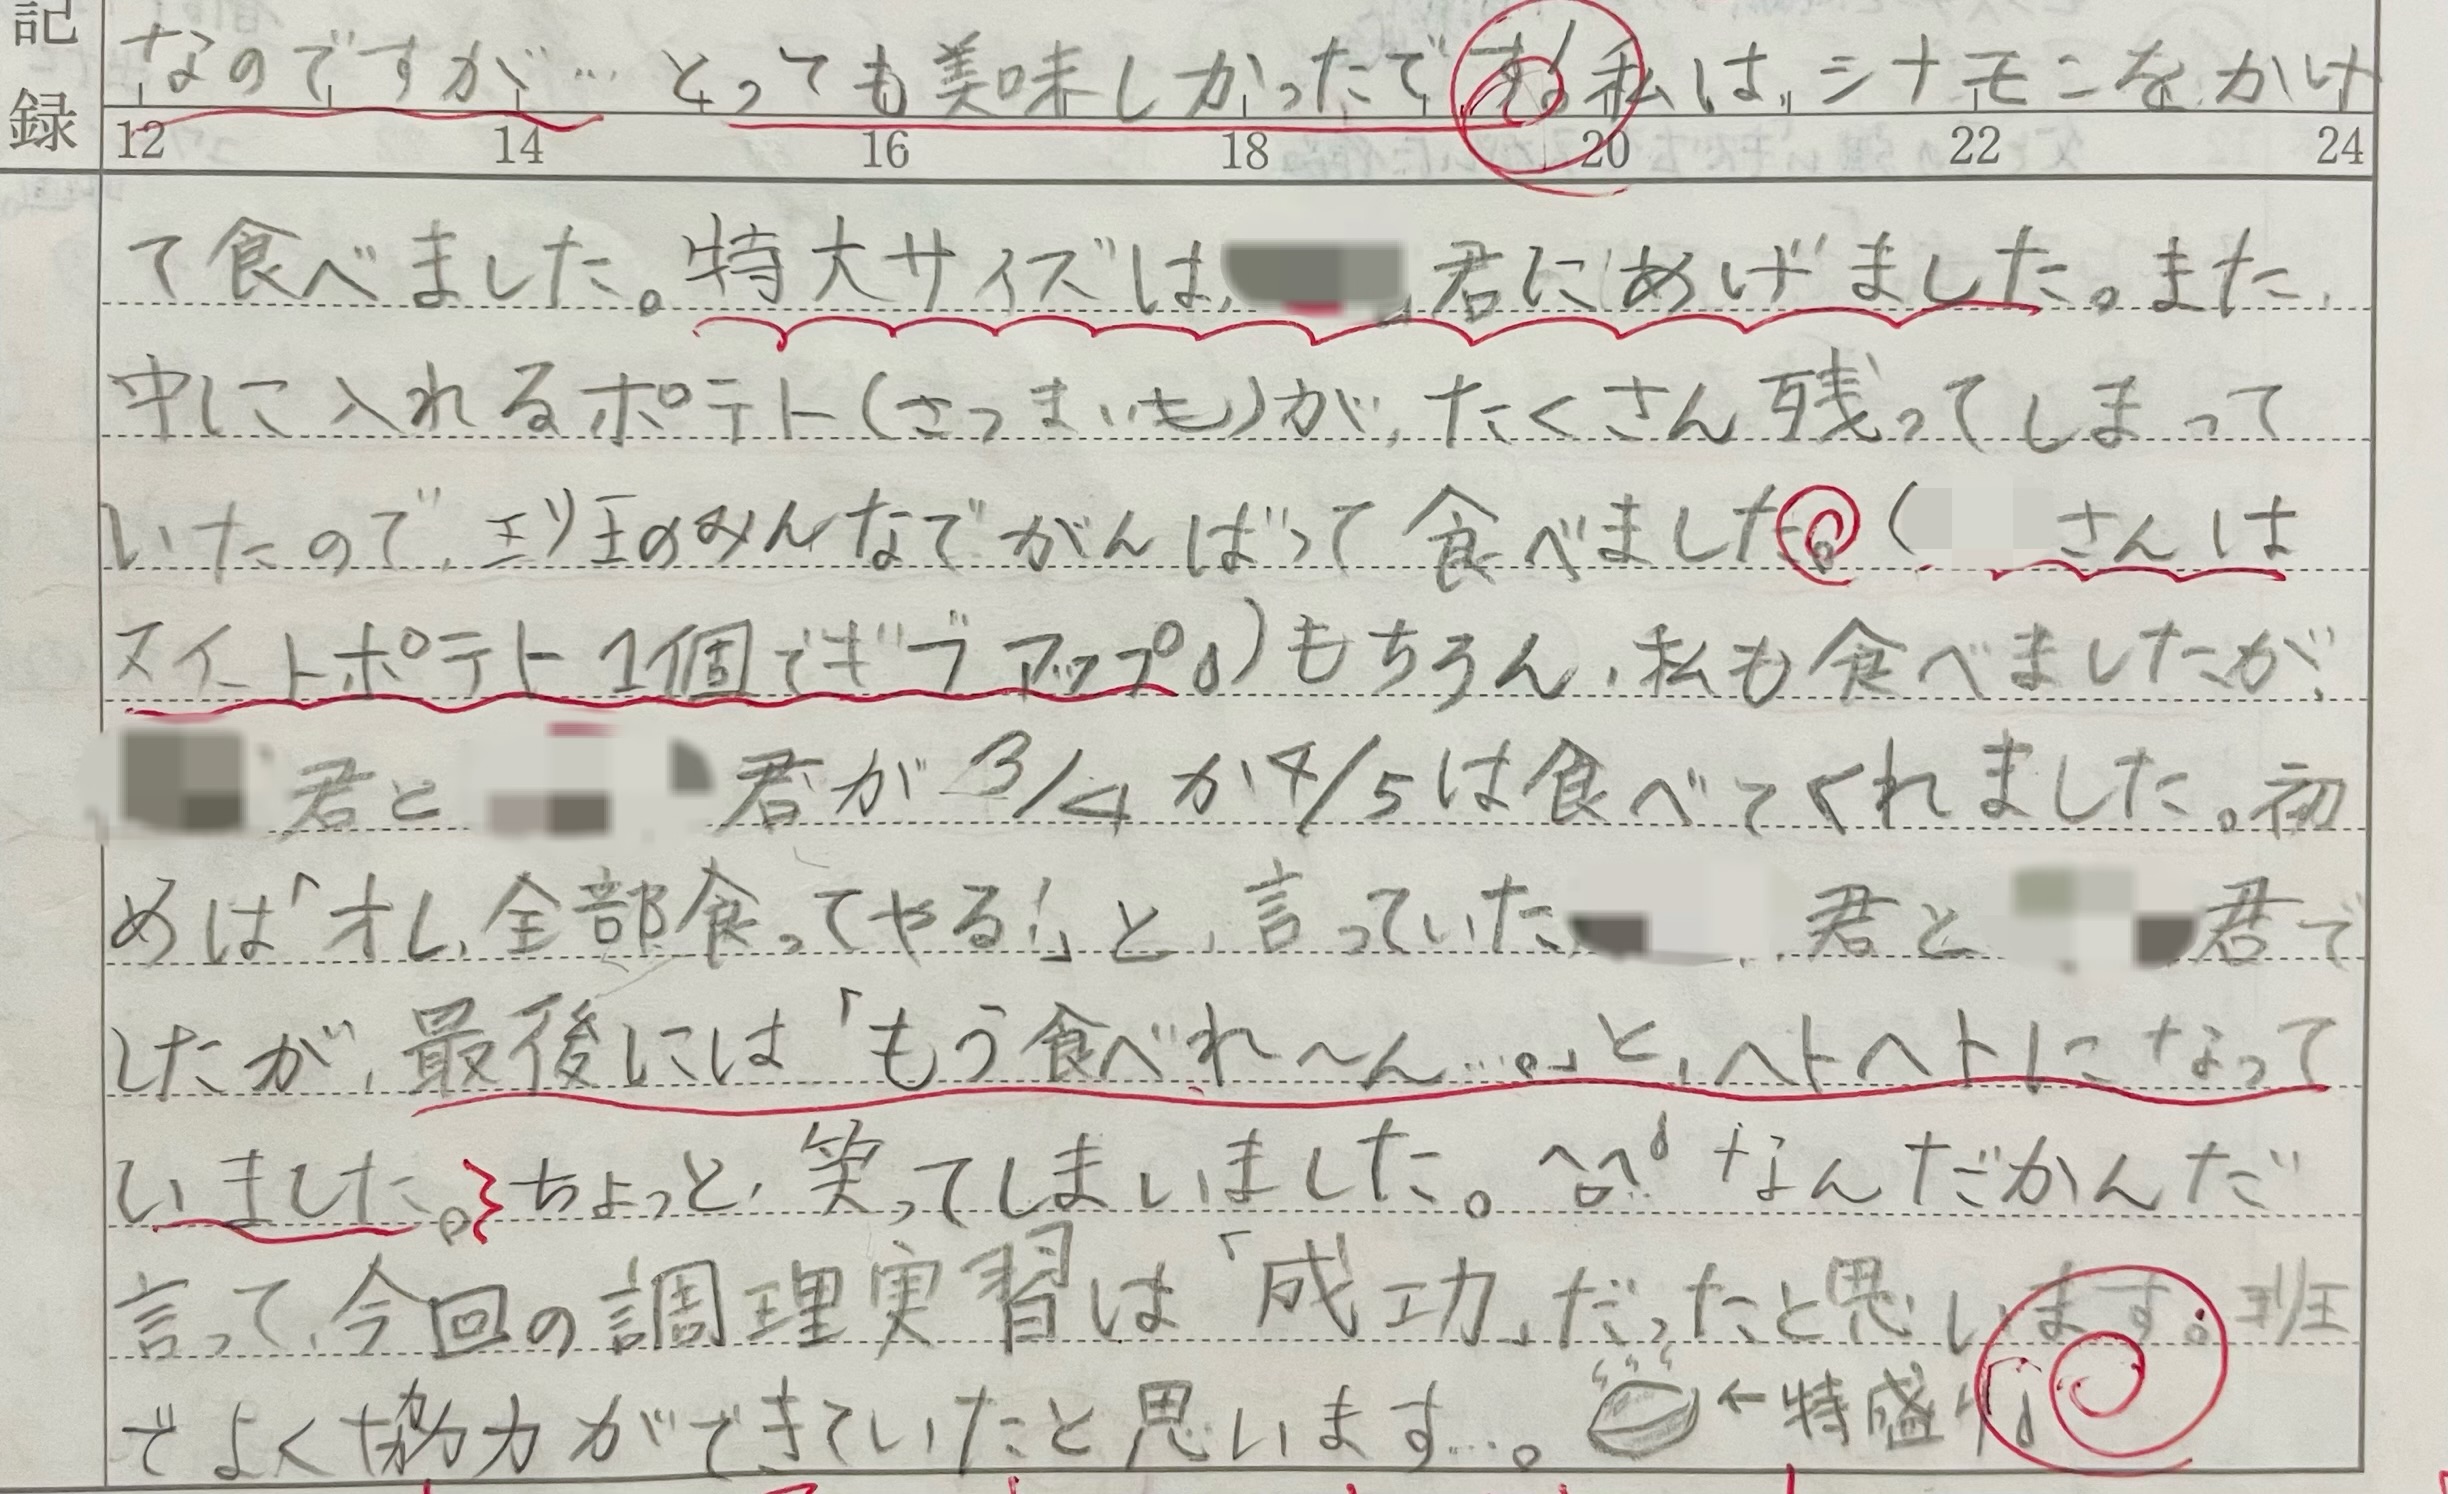 記録
なのですが…とっても美味しかったです!私は、シナモンをかけ
12 14 16 18 20 22 24
て食べました。特大サイズは、君にあげました。また、
中に入れるポテト(さつまいも)が、たくさん残ってしまって
いたので、班のみんなでがんばって食べました。(さんは
スイートポテト1個でギブアップ。)もちろん、私も食べましたが、
君と君が3/4か4/5は食べてくれました。初
めは「オレ、全部食ってやる!」と、言っていた君と君で
したが、最後には「もう食べれ〜ん…。」と、ヘトヘトになって
いました。ちょっと、笑ってしまいました。^o^ なんだかんだ
言って、今回の調理実習は「成功」だったと思います。班
でよく協力ができていたと思います…。←特盛り